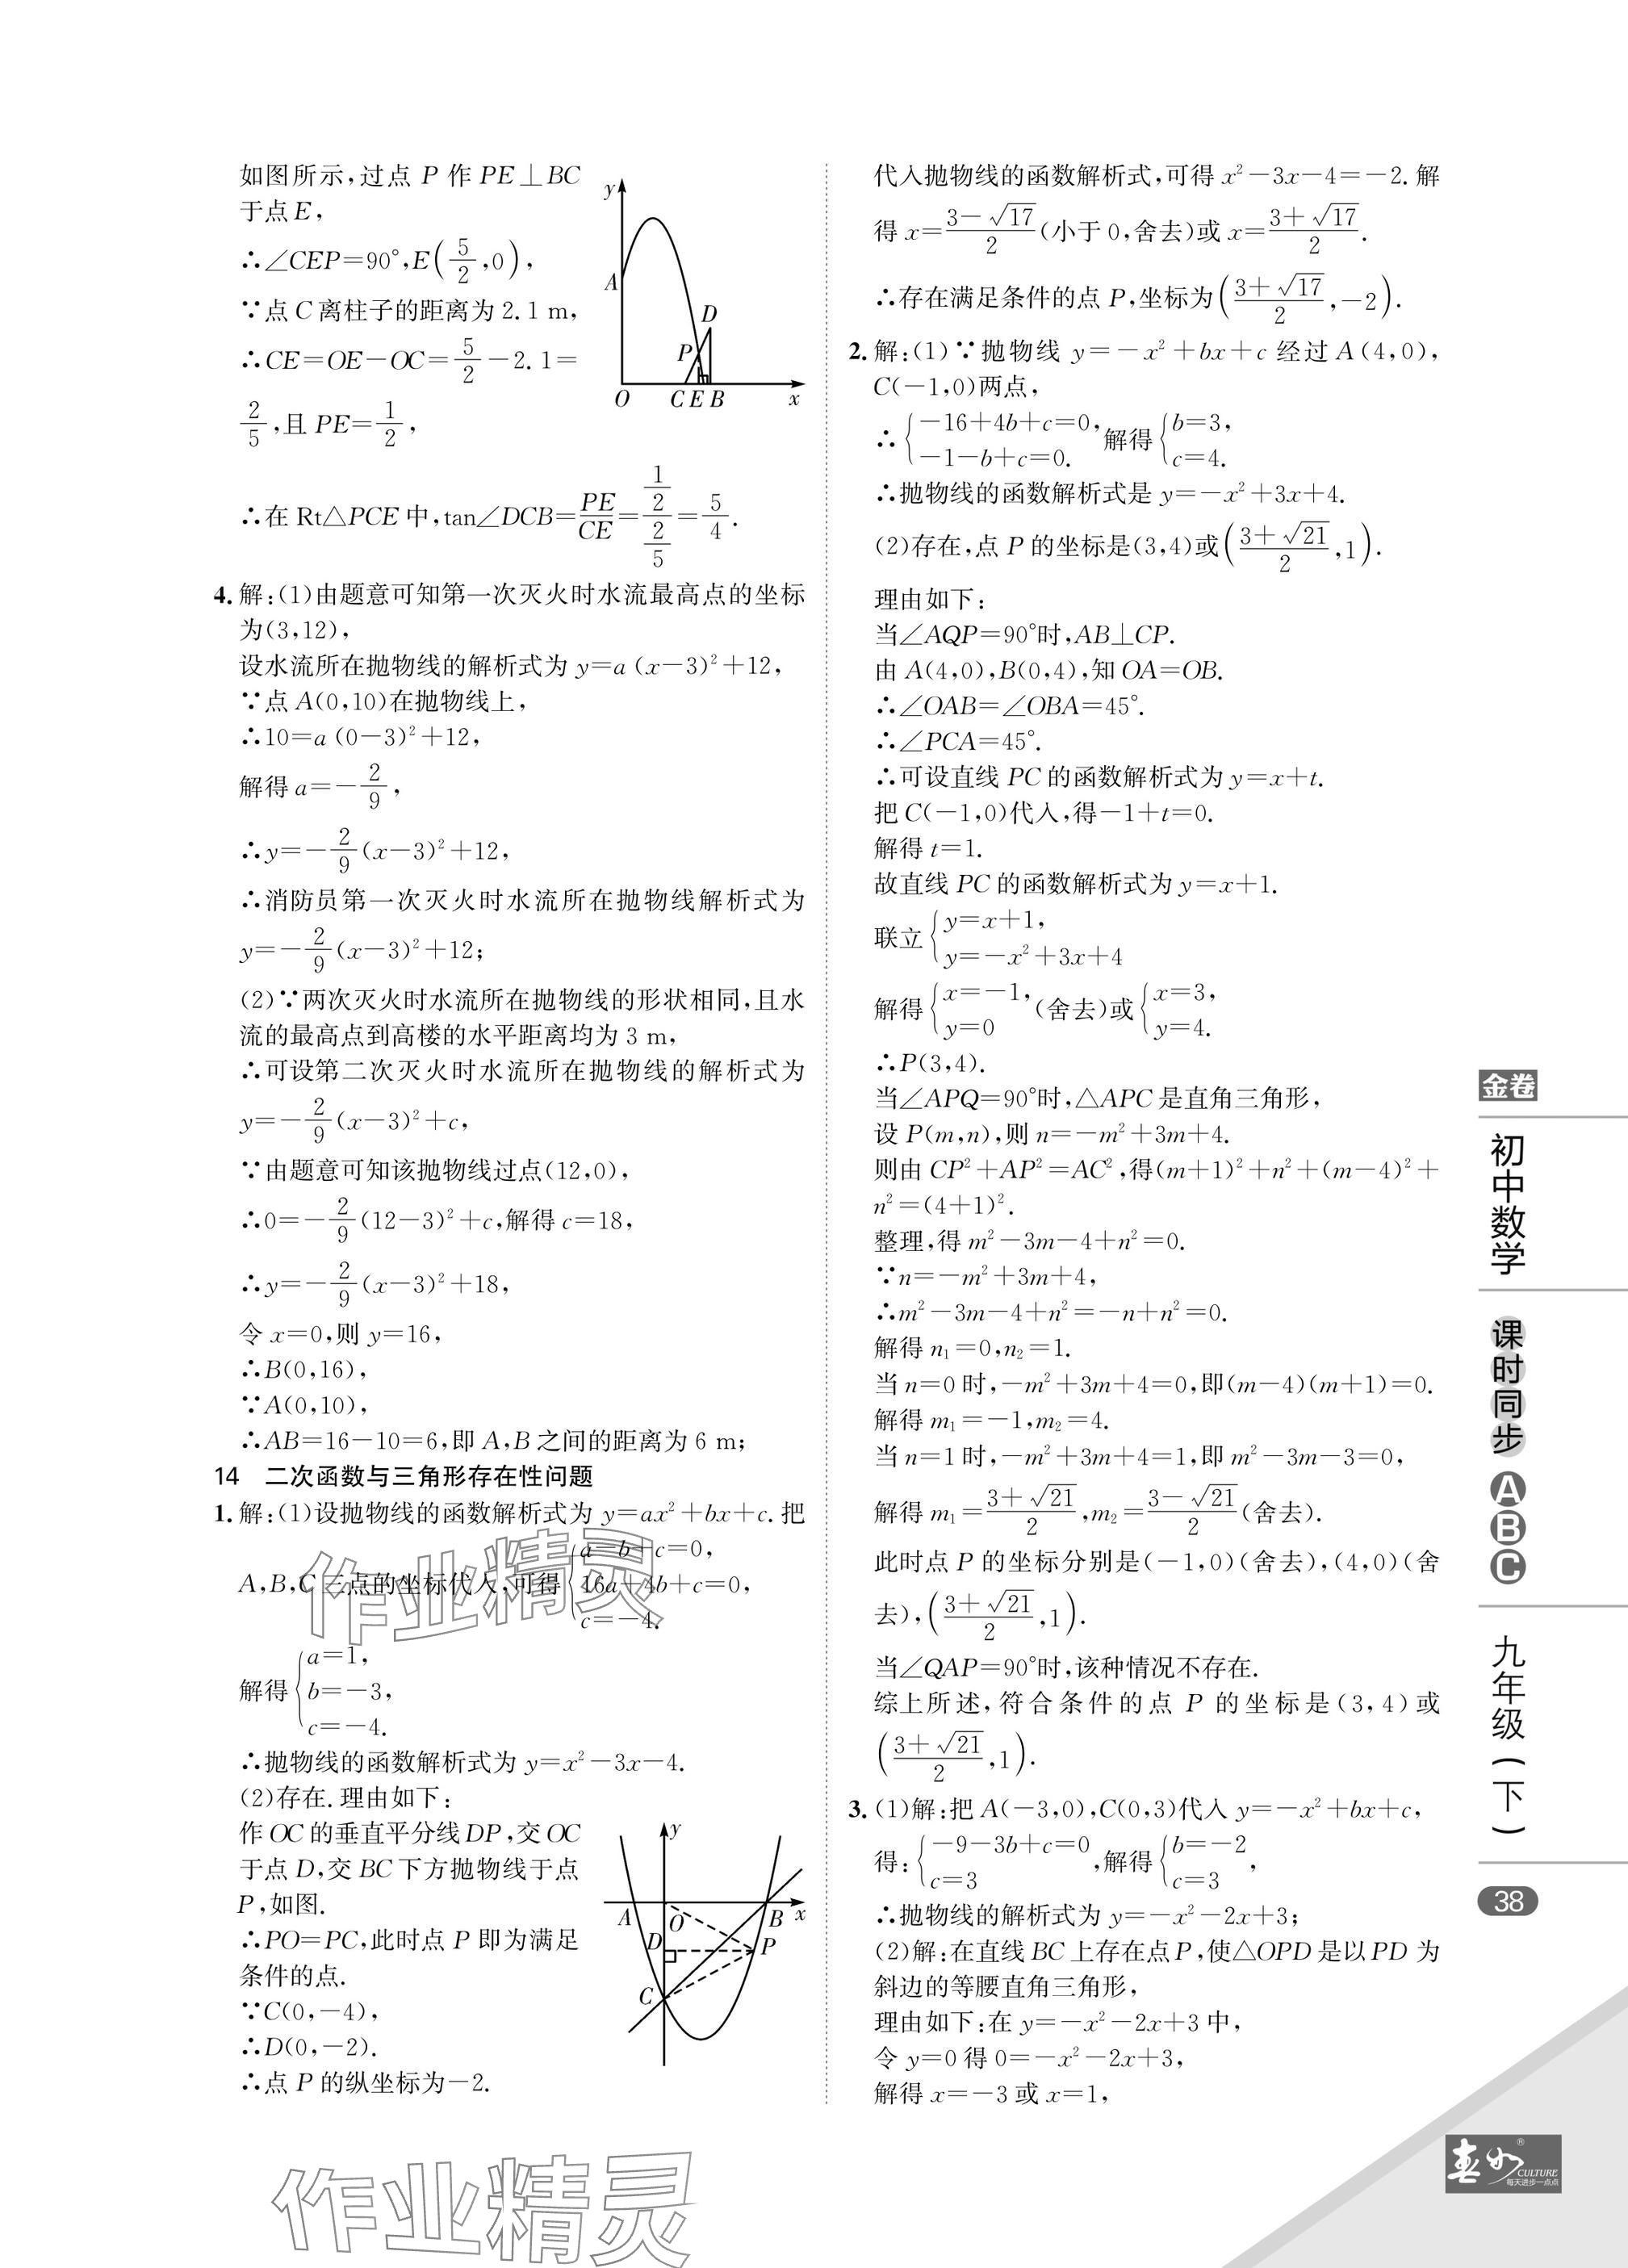 如图所示,过点 P 作 PE⊥BC
于点E,
∴∠CEP=90°,E(5/2,0),
∵点 C 离柱子的距离为 2.1 m,
∴CE=OE-OC=5/2-2.1=
2/5,且 PE=1/2,
∴在 Rt△PCE 中,tan∠DCB=PE/CE=(1/2)/(2/5)=5/4.
y
A
D
P
O
C E B
x
4. 解:(1)由题意可知第一次灭火时水流最高点的坐标
为(3,12),
设水流所在抛物线的解析式为 y=a (x-3)²+12,
∵点 A(0,10)在抛物线上,
∴10=a (0-3)²+12,
解得 a=-2/9,
∴y=-2/9(x-3)²+12,
∴消防员第一次灭火时水流所在抛物线解析式为
y=-2/9(x-3)²+12;
(2)∵两次灭火时水流所在抛物线的形状相同,且水
流的最高点到高楼的水平距离均为 3 m,
∴可设第二次灭火时水流所在抛物线的解析式为
y=-2/9(x-3)²+c,
∵由题意可知该抛物线过点(12,0),
∴0=-2/9(12-3)²+c,解得 c=18,
∴y=-2/9(x-3)²+18,
令 x=0,则 y=16,
∴B(0,16),
∵A(0,10),
∴AB=16-10=6,即 A,B 之间的距离为 6 m;
14 二次函数与三角形存在性问题
1. 解:(1)设抛物线的函数解析式为 y=ax²+bx+c. 把
A,B,C 三点的坐标代入,可得{a-b+c=0,
16a+4b+c=0,
c=-4.
解得{a=1,
b=-3,
c=-4.
∴抛物线的函数解析式为 y=x²-3x-4.
(2)存在. 理由如下:
作 OC 的垂直平分线DP,交 OC
于点 D,交 BC 下方抛物线于点
P,如图.
∴PO=PC,此时点 P 即为满足
条件的点.
∵C(0,-4),
∴D(0,-2).
∴点 P 的纵坐标为-2.
y
A
O
B
x
D
P
C
代入抛物线的函数解析式,可得 x²-3x-4=-2. 解
得 x=(3-√17)/2(小于 0,舍去)或 x=(3+√17)/2.
∴存在满足条件的点 P,坐标为((3+√17)/2,-2).
2. 解:(1)∵抛物线 y=-x²+bx+c 经过 A(4,0),
C(-1,0)两点,
∴{-16+4b+c=0,
-1-b+c=0. 解得{b=3,
c=4.
∴抛物线的函数解析式是 y=-x²+3x+4.
(2)存在,点 P 的坐标是(3,4)或((3+√21)/2,1).
理由如下:
当∠AQP=90°时,AB⊥CP.
由 A(4,0),B(0,4),知 OA=OB.
∴∠OAB=∠OBA=45°.
∴∠PCA=45°.
∴可设直线 PC 的函数解析式为 y=x+t.
把 C(-1,0)代入,得-1+t=0.
解得 t=1.
故直线 PC 的函数解析式为 y=x+1.
联立{y=x+1,
y=-x²+3x+4
解得{x=-1,
y=0 (舍去)或{x=3,
y=4.
∴P(3,4).
当∠APQ=90°时,△APC 是直角三角形,
设 P(m,n),则 n=-m²+3m+4.
则由 CP²+AP²=AC²,得(m+1)²+n²+(m-4)²+
n²=(4+1)².
整理,得 m²-3m-4+n²=0.
∵n=-m²+3m+4,
∴m²-3m-4+n²=-n+n²=0.
解得 n₁=0,n₂=1.
当 n=0 时,-m²+3m+4=0,即(m-4)(m+1)=0.
解得 m₁=-1,m₂=4.
当 n=1 时,-m²+3m+4=1,即 m²-3m-3=0,
解得 m₁=(3+√21)/2,m₂=(3-√21)/2(舍去).
此时点 P 的坐标分别是(-1,0)(舍去),(4,0)(舍
去),((3+√21)/2,1).
当∠QAP=90°时,该种情况不存在.
综上所述,符合条件的点 P 的坐标是(3,4)或
((3+√21)/2,1).
3. (1)解:把 A(-3,0),C(0,3)代入 y=-x²+bx+c,
得:{-9-3b+c=0
c=3 ,解得{b=-2
c=3 ,
∴抛物线的解析式为 y=-x²-2x+3;
(2)解:在直线 BC 上存在点 P,使△OPD 是以 PD 为
斜边的等腰直角三角形,
理由如下:在 y=-x²-2x+3 中,
令 y=0 得 0=-x²-2x+3,
解得 x=-3 或 x=1,
金卷
初中数学
课时同步
A
B
C
九年级(下)
38
作业精灵
作业精灵
春如®
CULTURE
每天进步一点点